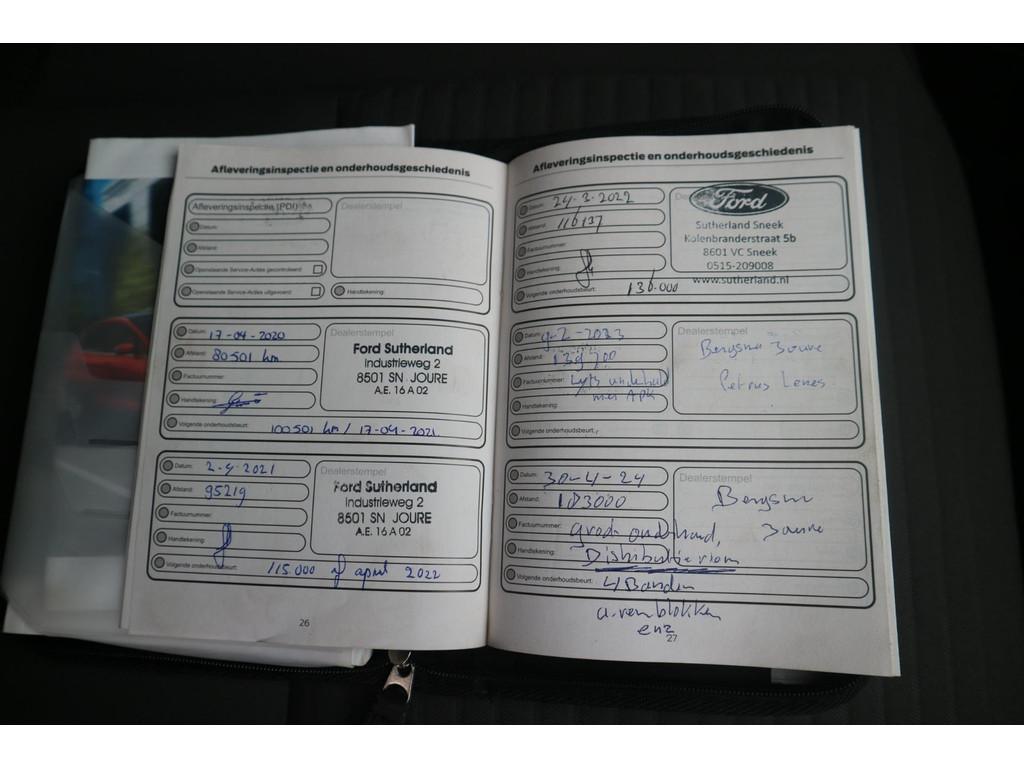 Afleveringsinspectie en onderhoudsgeschiedenis
Afleveringsinspectie (PDI)
Dealerstempel
Datum:
Afstand:
Openstaande Service-Acties gecontroleerd:
Openstaande Service-Acties uitgevoerd:
Handtekening:
Datum: 17-04-2020
Dealerstempel
Afstand: 80501 km
Ford Sutherland
Industrieweg 2
8501 SN JOURE
A.E. 16 A 02
Factuurnummer:
Handtekening:
Volgende onderhoudsbeurt: 100501 km / 17-04-2021.
Datum: 2-4-2021
Dealerstempel
Afstand: 95219
Ford Sutherland
Industrieweg 2
8501 SN JOURE
A.E. 16 A 02
Factuurnummer:
Handtekening:
Volgende onderhoudsbeurt: 115.000 of april 2022
26
Afleveringsinspectie en onderhoudsgeschiedenis
Datum: 24-3-2022
Afstand: 116137
Ford
Sutherland Sneek
Kolenbranderstraat 5b
8601 VC Sneek
0515-209008
www.sutherland.nl
Factuurnummer:
Handtekening:
Volgende onderhoudsbeurt: 136.000
Datum: 9-2-2023
Dealerstempel
Afstand: 139700
Bergsma Joure
Petrus
Factuurnummer: onderhoud
met APK
Handtekening:
Volgende onderhoudsbeurt:
Datum: 30-4-24
Dealerstempel
Afstand: 183000
Bergsma
Joure
Factuurnummer: groot onderhoud,
Handtekening: Distributieriem
Volgende onderhoudsbeurt: 4 Banden
a. remblokken
enz
27